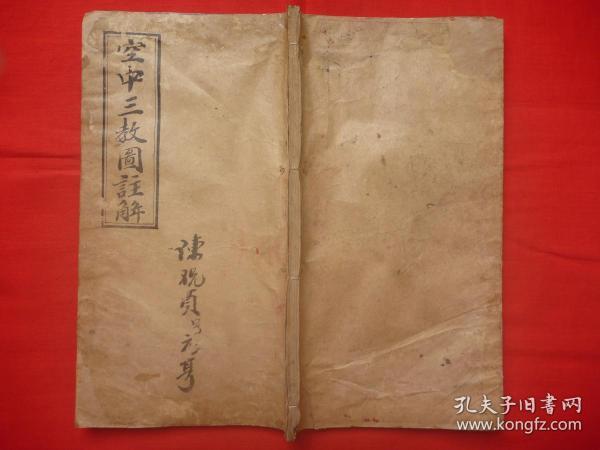 空中三教圖註解
陳
貞
孔夫子旧书网
www.kongfz.com